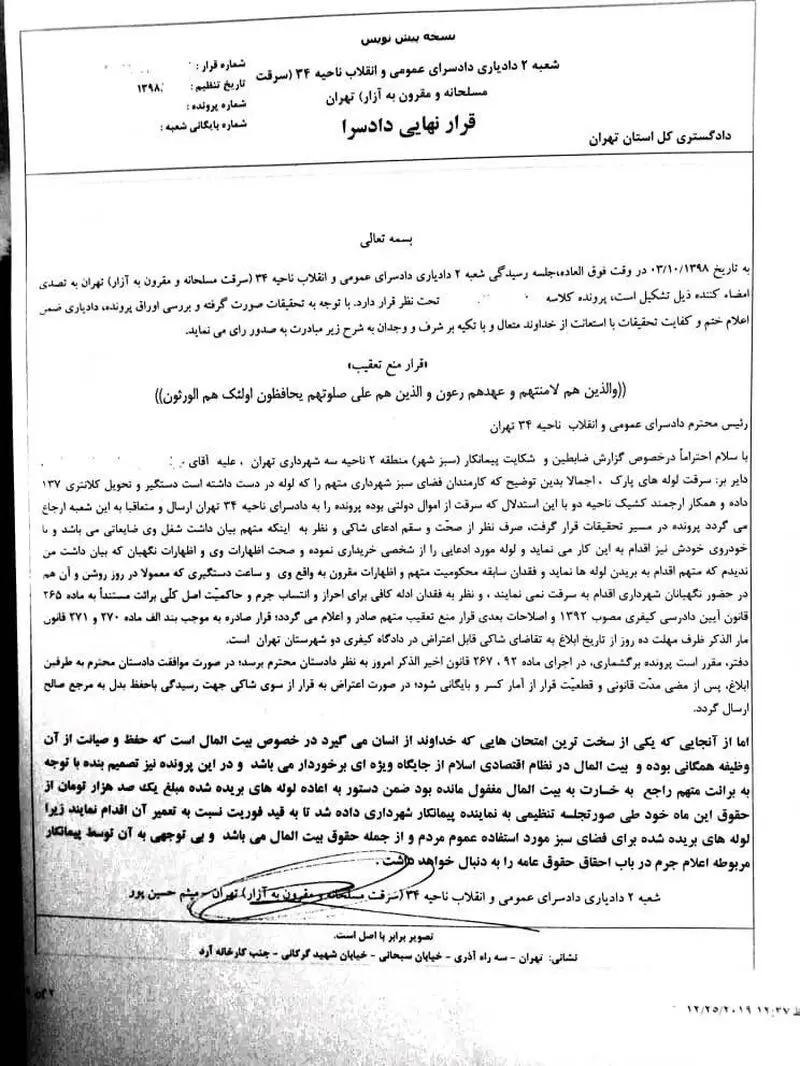 نسخه پیش نویس
شعبه ۲ دادیاری دادسرای عمومی و انقلاب ناحیه ۳۴ (سرقت
مسلحانه و مقرون به آزار) تهران
قرار نهایی دادسرا
شماره قرار :
تاریخ تنظیم : ۱۳۹۸
شماره پرونده :
شماره بایگانی شعبه :
دادگستری کل استان تهران
بسمه تعالی
به تاریخ ۰۳/۱۰/۱۳۹۸ در وقت فوق العاده،جلسه رسیدگی شعبه ۲ دادیاری دادسرای عمومی و انقلاب ناحیه ۳۴ (سرقت مسلحانه و مقرون به آزار) تهران به تصدی
امضاء کننده ذیل تشکیل است، پرونده کلاسه تحت نظر قرار دارد. با توجه به تحقیقات صورت گرفته و بررسی اوراق پرونده، دادیاری ضمن
اعلام ختم و کفایت تحقیقات با استعانت از خداوند متعال و با تکیه بر شرف و وجدان به شرح زیر مبادرت به صدور رای می نماید.
«قرار منع تعقیب»
((والذین هم لامنتهم و عهدهم رعون و الذین هم علی صلوتهم یحافظون اولئک هم الورثون))
رئیس محترم دادسرای عمومی و انقلاب ناحیه ۳۴ تهران
با سلام احتراماً درخصوص گزارش ضابطین و شکایت پیمانکار (سبز شهر) منطقه ۲ ناحیه سه شهرداری تهران ، علیه آقای
دایر بر: سرقت لوله های پارک ، اجمالا بدین توضیح که کارمندان فضای سبز شهرداری متهم را که لوله در دست داشته است دستگیر و تحویل کلانتری ۱۳۷
داده و همکار ارجمند کشیک ناحیه دو با این استدلال که سرقت از اموال دولتی بوده پرونده را به دادسرای ناحیه ۳۴ تهران ارسال و متعاقبا به این شعبه ارجاع
می گردد پرونده در مسیر تحقیقات قرار گرفت، صرف نظر از صحّت و سقم ادعای شاکی و نظر به اینکه متهم بیان داشت شغل وی ضایعاتی می باشد و با
خودروی خودش نیز اقدام به این کار می نماید و لوله مورد ادعایی را از شخصی خریداری نموده و صحت اظهارات وی و اظهارات نگهبان که بیان داشت من
ندیدم که متهم اقدام به بریدن لوله ها نماید و فقدان سابقه محکومیت متهم و اظهارات مقرون به واقع وی و ساعت دستگیری که معمولا در روز روشن و آن هم
در حضور نگهبانان شهرداری اقدام به سرقت نمی نمایند ، و نظر به فقدان ادله کافی برای احراز و انتساب جرم و حاکمیّت اصل کلّی برائت مستنداً به ماده ۲۶۵
قانون آیین دادرسی کیفری مصوب ۱۳۹۲ و اصلاحات بعدی قرار منع تعقیب متهم صادر و اعلام می گردد؛ قرار صادره به موجب بند الف ماده ۲۷۰ و ۲۷۱ قانون
مار الذکر ظرف مهلت ده روز از تاریخ ابلاغ به تقاضای شاکی قابل اعتراض در دادگاه کیفری دو شهرستان تهران است.
دفتر، مقرر است پرونده برگشماری، در اجرای ماده ۹۲ ، ۲۶۷ قانون اخیر الذکر امروز به نظر دادستان محترم برسد؛ در صورت موافقت دادستان محترم به طرفین
ابلاغ، پس از مضی مدّت قانونی و قطعیّت قرار از آمار کسر و بایگانی شود؛ در صورت اعتراض به قرار از سوی شاکی جهت رسیدگی باحفظ بدل به مرجع صالح
ارسال گردد.
اما از آنجایی که یکی از سخت ترین امتحان هایی که خداوند از انسان می گیرد در خصوص بیت المال است که حفظ و صیانت از آن
وظیفه همگانی بوده و بیت المال در نظام اقتصادی اسلام از جایگاه ویژه ای برخوردار می باشد و در این پرونده نیز تصمیم بنده با توجه
به برائت متهم راجع به خسارت به بیت المال مغفول مانده بود ضمن دستور به اعاده لوله های بریده شده مبلغ یک صد هزار تومان از
حقوق این ماه خود طی صورتجلسه تنظیمی به نماینده پیمانکار شهرداری داده شد تا به قید فوریت نسبت به تعمیر آن اقدام نمایند زیرا
لوله های بریده شده برای فضای سبز مورد استفاده عموم مردم و از جمله حقوق بیت المال می باشد و بی توجهی به آن توسط پیمانکار
مربوطه اعلام جرم در باب احقاق حقوق عامه را به دنبال خواهد داشت .
شعبه ۲ دادیاری دادسرای عمومی و انقلاب ناحیه ۳۴ (سرقت مسلحانه و مقرون به آزار) تهران - میثم حسین پور
تصویر برابر با اصل است.
نشانی: تهران - سه راه آذری - خیابان سبحانی - خیابان شهید گرکانی - جنب کارخانه آرد
۱۲/۲۵/۲۰۱۹ ۱۲:۳۷